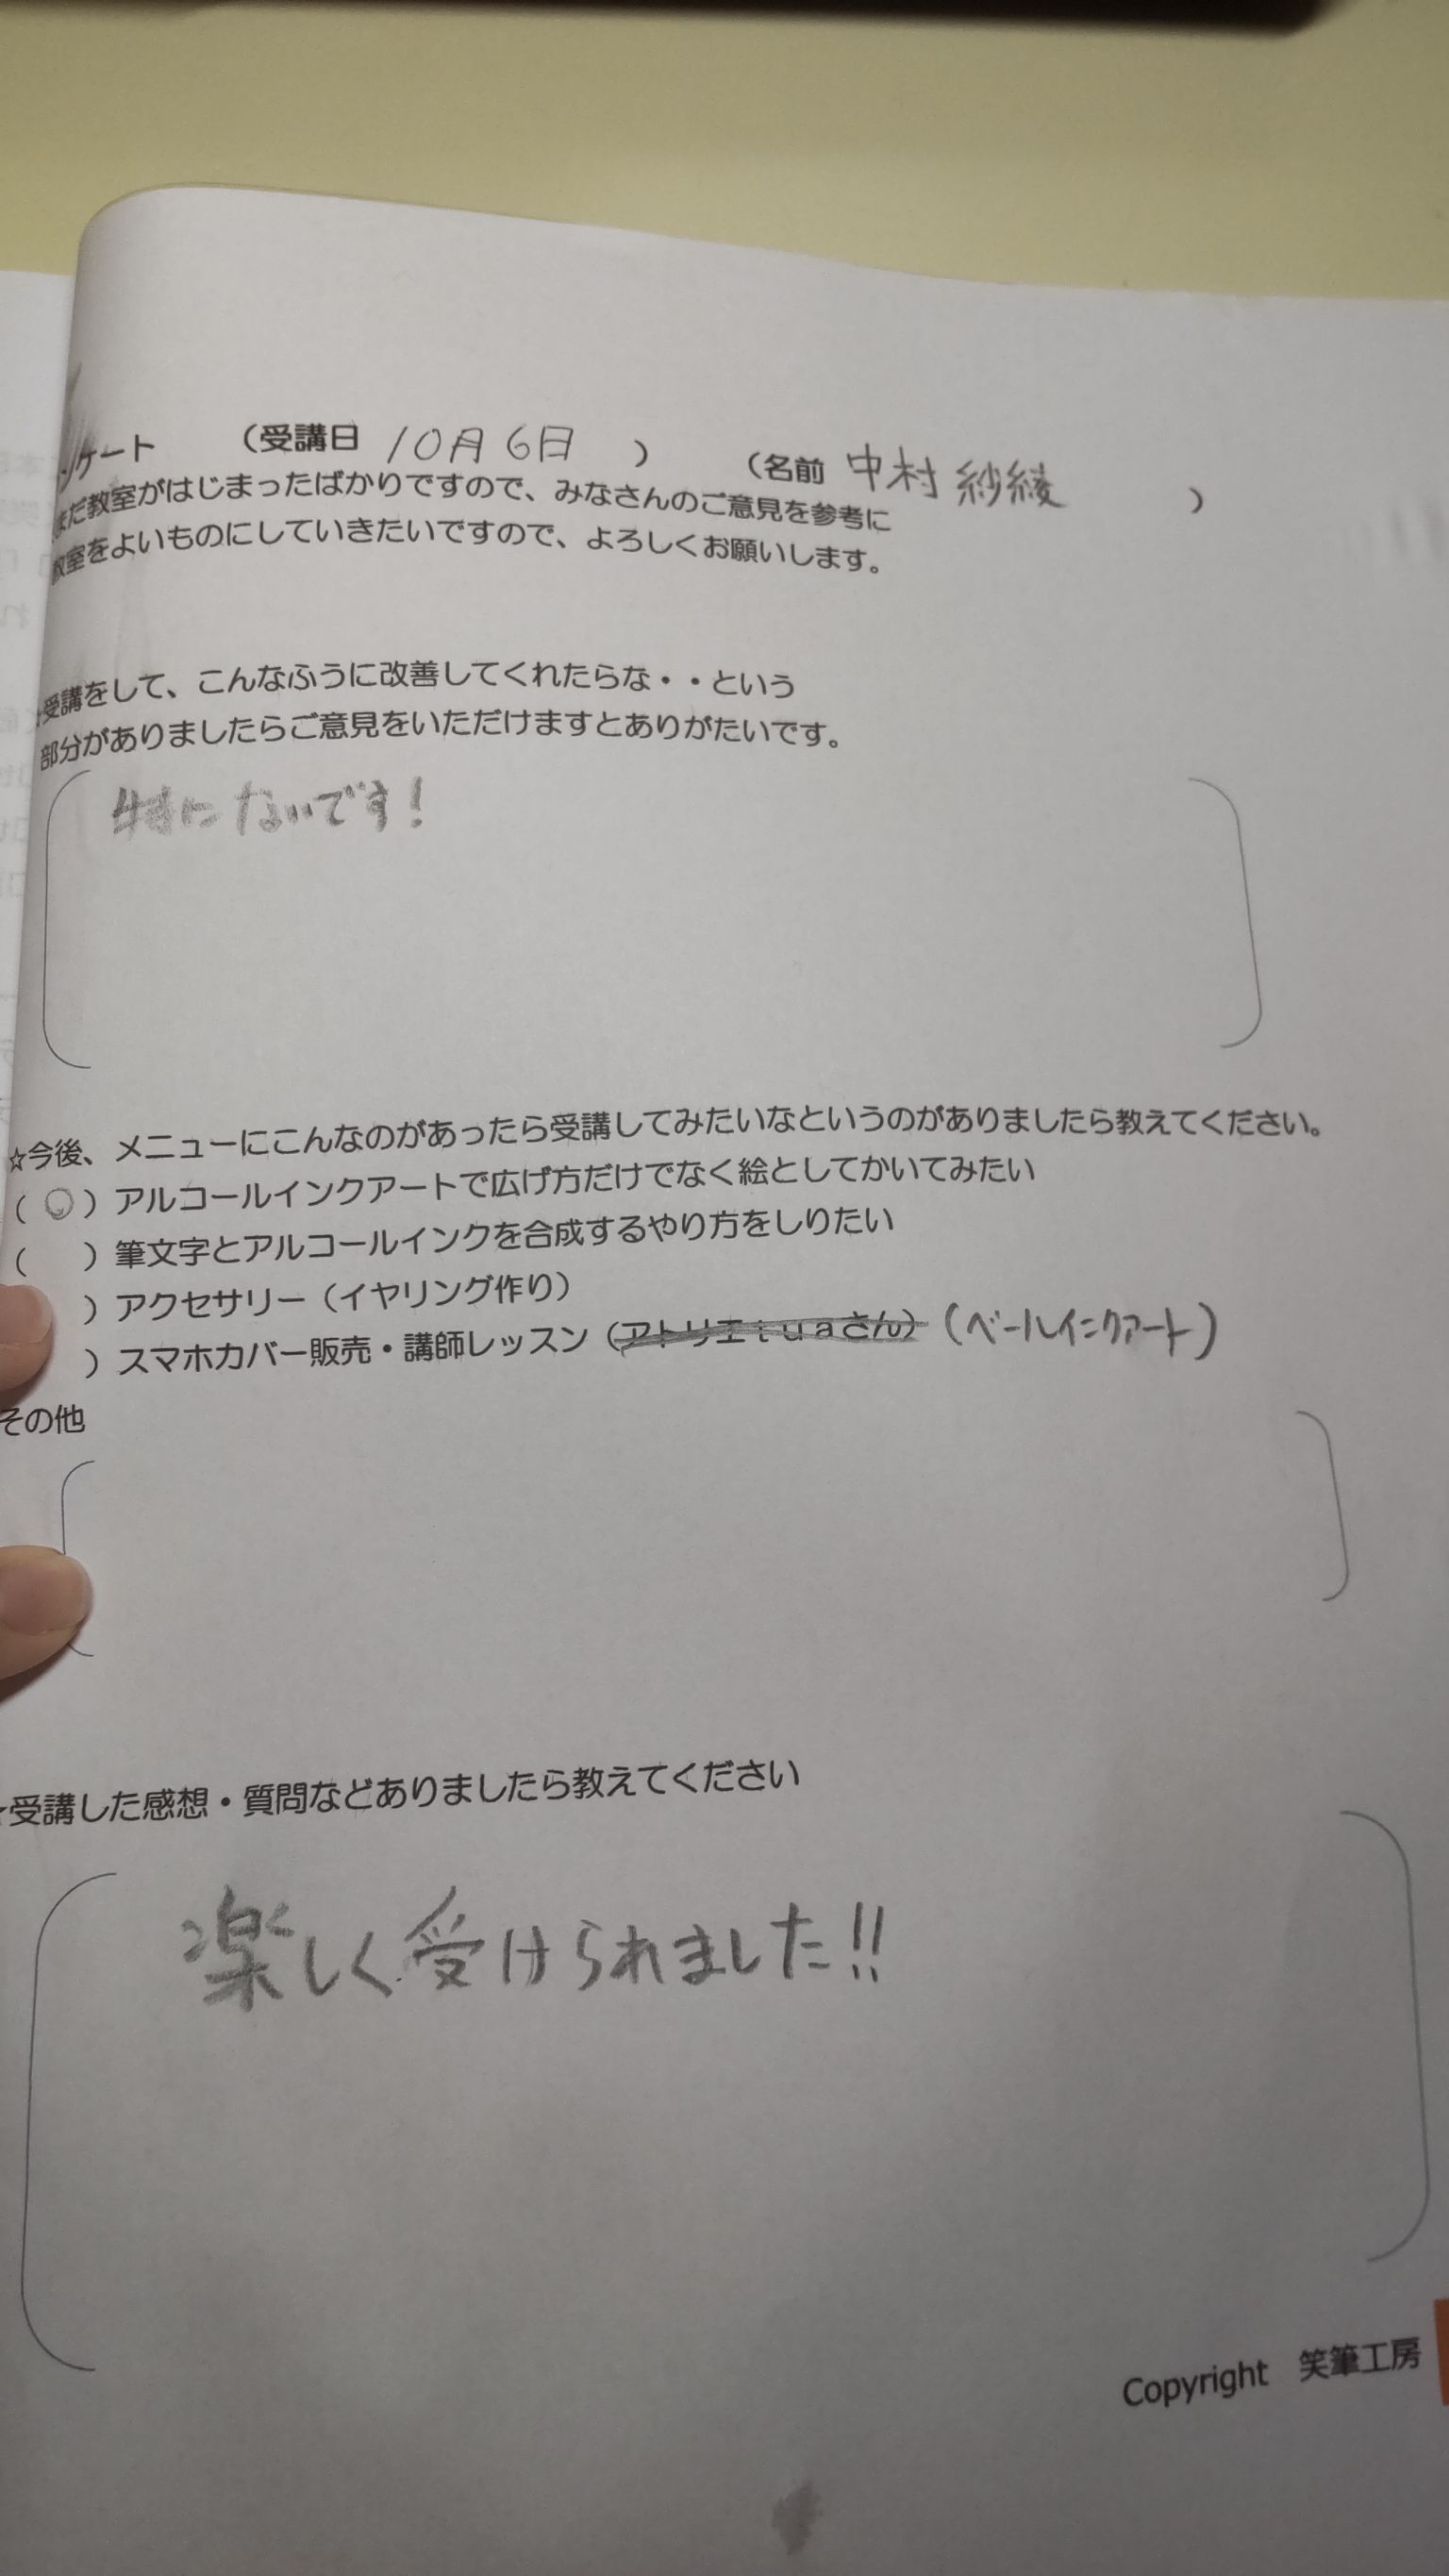 ンケート （受講日 10月6日 ） （名前 中村 紗綾 ）
まだ教室がはじまったばかりですので、みなさんのご意見を参考に
教室をよいものにしていきたいですので、よろしくお願いします。
受講をして、こんなふうに改善してくれたらな・・という
部分がありましたらご意見をいただけますとありがたいです。
特にないです！
☆今後、メニューにこんなのがあったら受講してみたいなというのがありましたら教えてください。
（ ○ ）アルコールインクアートで広げ方だけでなく絵としてかいてみたい
（ ）筆文字とアルコールインクを合成するやり方をしりたい
）アクセサリー（イヤリング作り）
）スマホカバー販売・講師レッスン（アトリエｔｕａさん）（ベールインクアート）
その他
受講した感想・質問などありましたら教えてください
楽しく受けられました!!
Copyright 笑筆工房